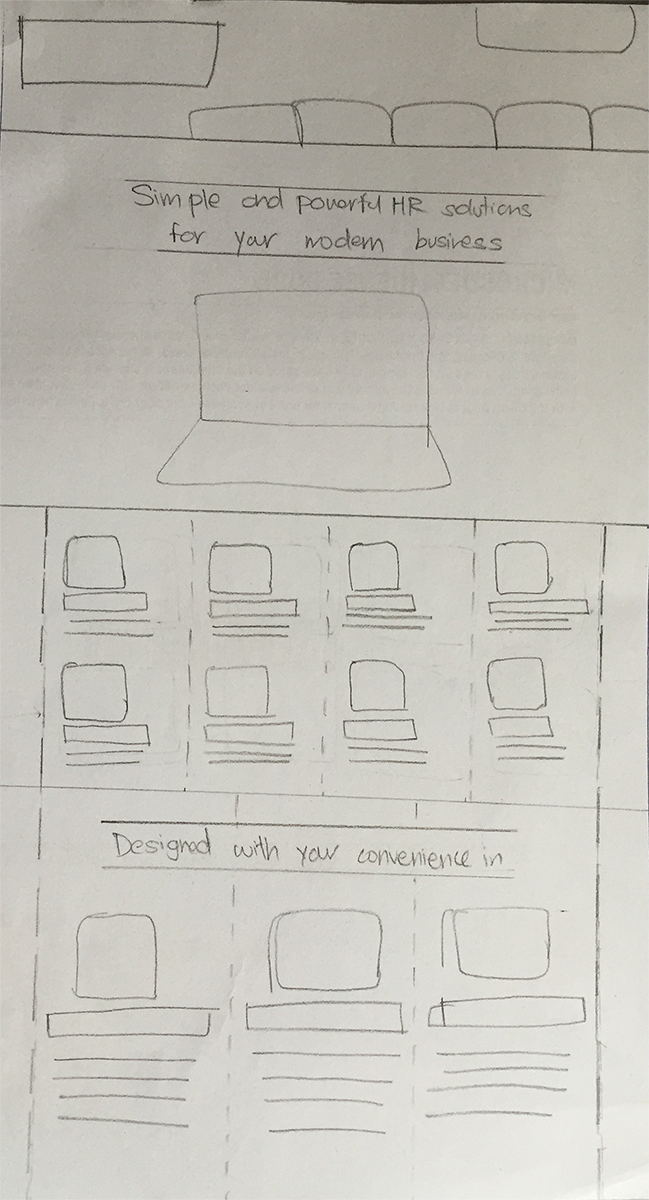 Simple and powerful HR solutions
for your modern business
Designed with your convenience in